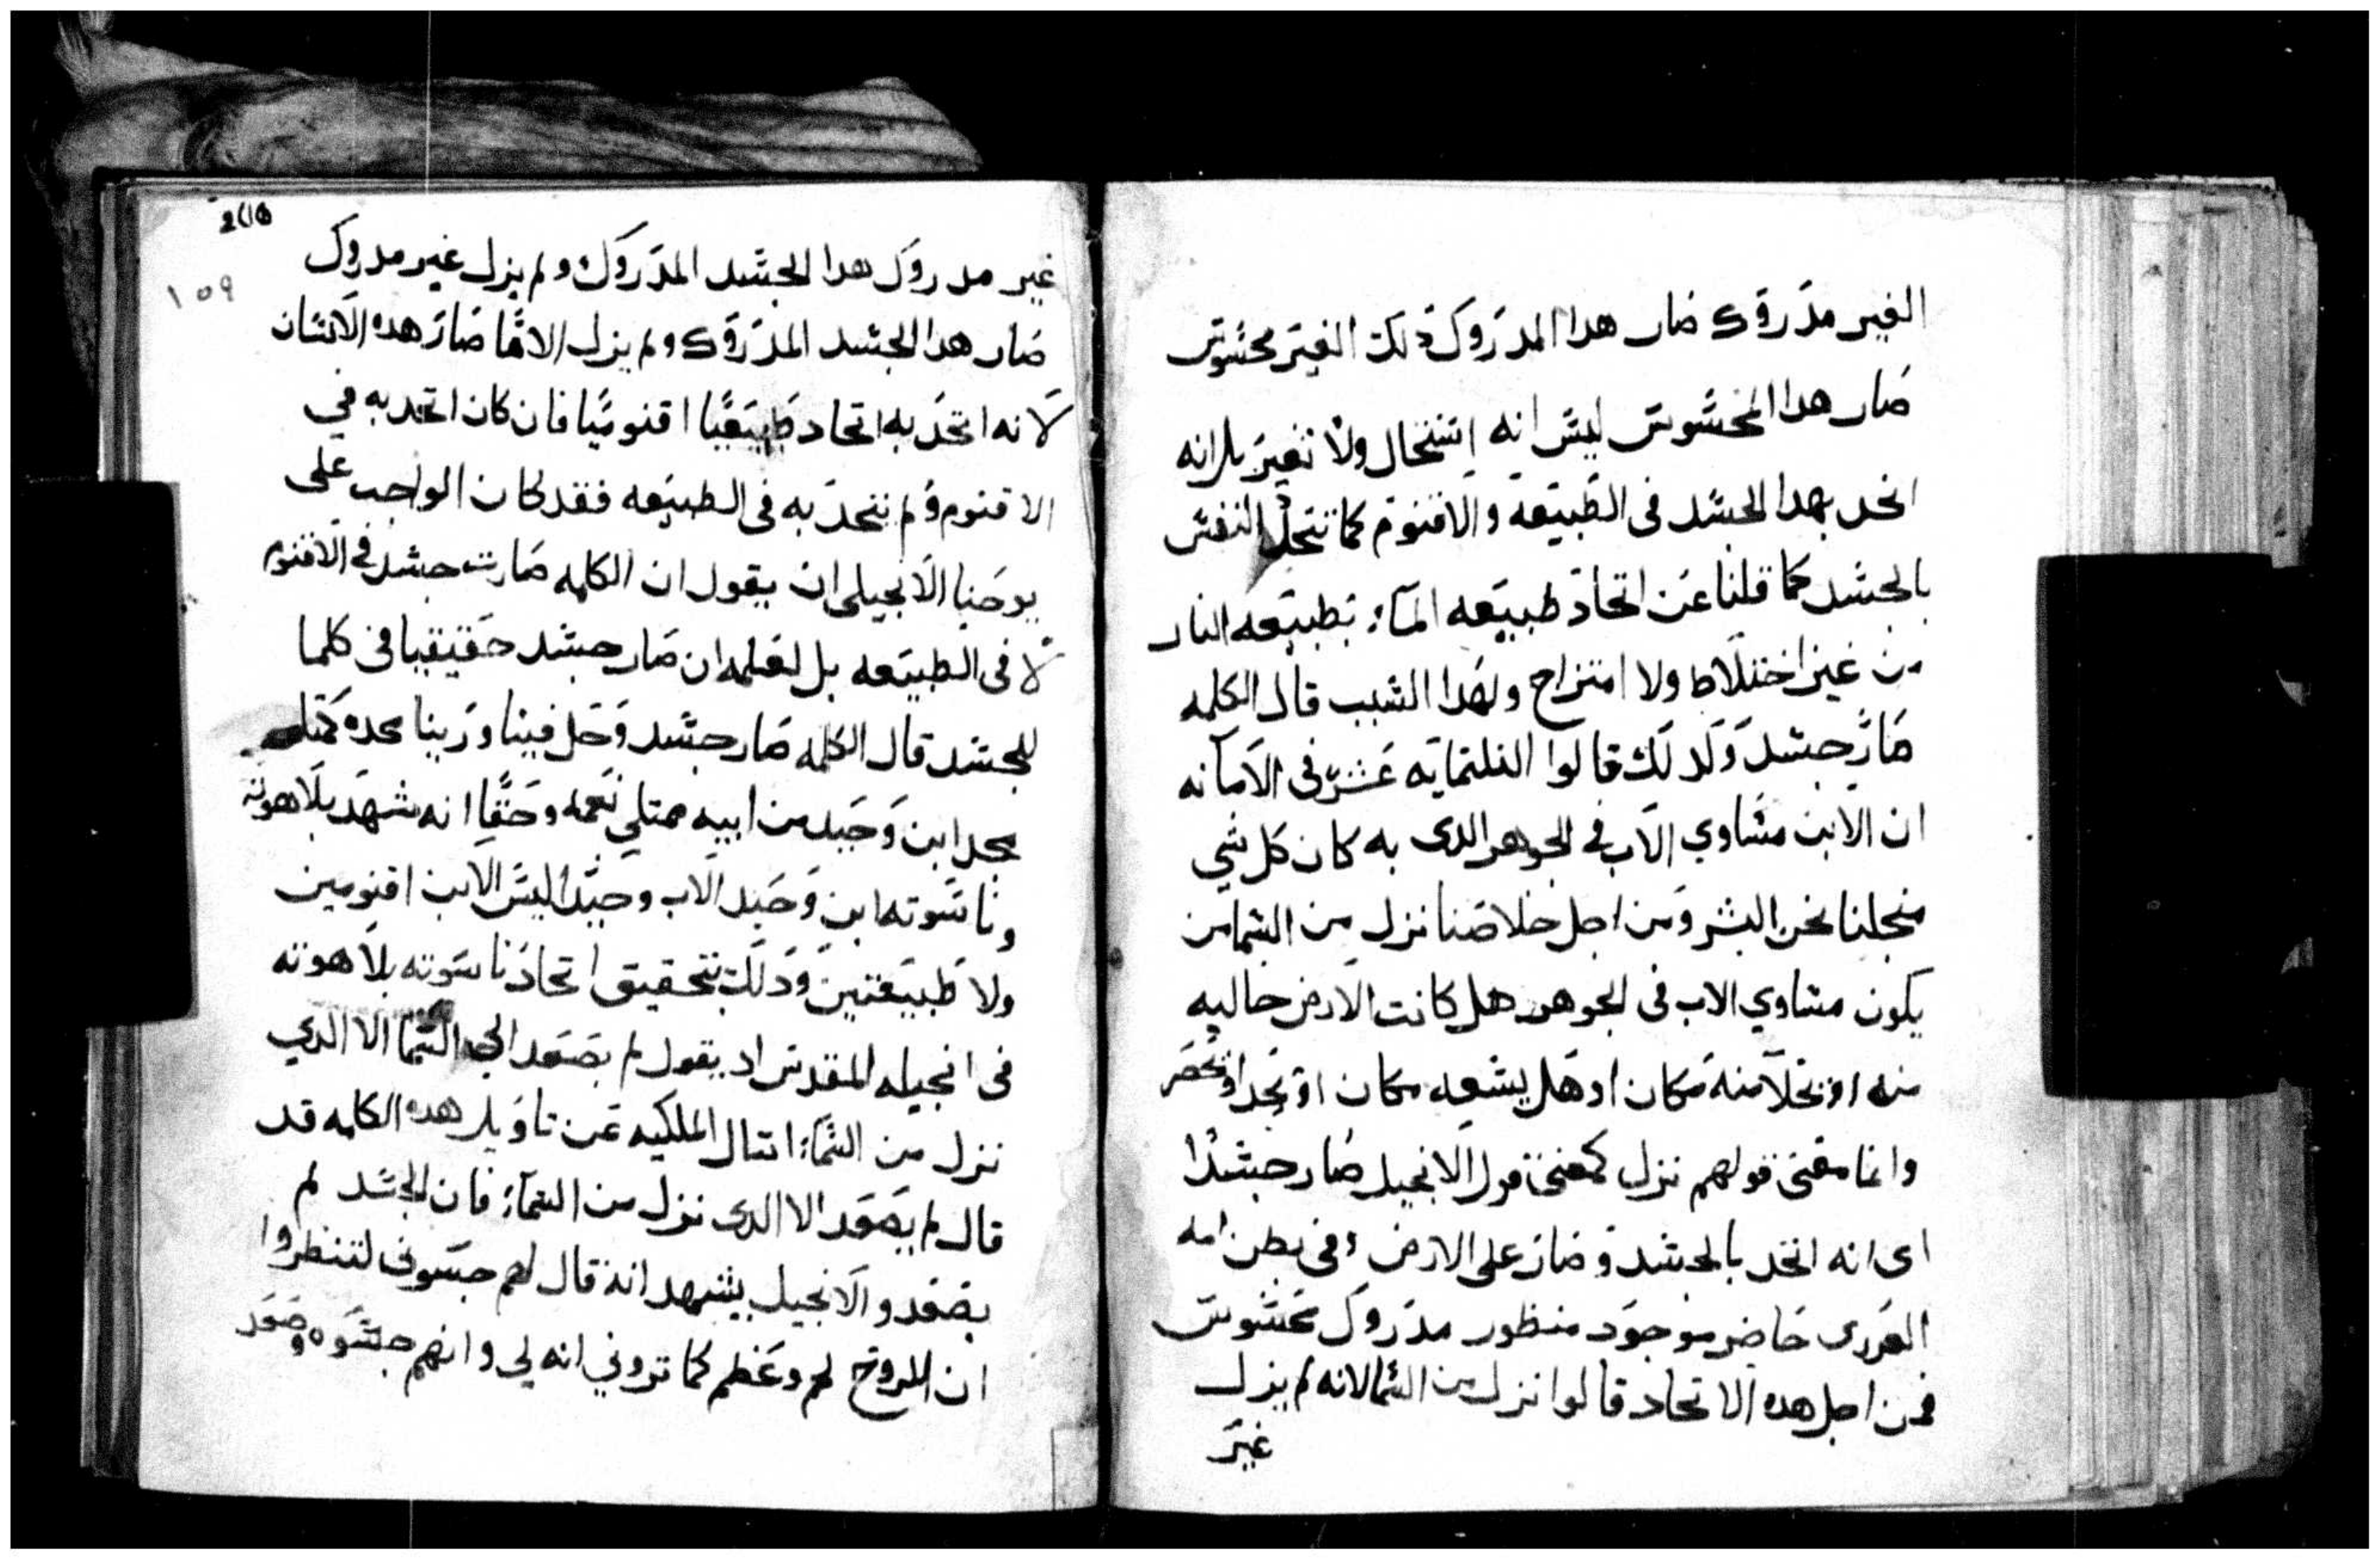 الغير مدروك صار هدا المدروك دلك الغير محسوس
صار هدا المحسوس ليس انه إستحال ولا تغير بل انه
اتحد بهدا الجسد فى الطبيعة والاقنوم كما تتحد النفس
بالجسد كما قلنا عن اتحاد طبيعه المآء بطبيعه النار
من غير اختلاط ولا امتزاج ولهدا السبب قال الكلمه
صار جسد ولدلك قالوا التلتمايه عشر فى الامانه
ان الابن مساوي الاب فى الجوهر الدى به كان كل شي
منجلنا نحن البشر ومن اجل خلاصنا نزل من السما من
يكون مساوي الاب فى الجوهر هل كانت الارض خاليه
منه او يخلا منه مكان او هل يسعه مكان او يحد او يحصر
وانما معنى قولهم نزل كمعنى قول الانجيل صار جسدا
اى انه اتحد بالجسد وصار على الارض وفى بطن امه
العدرى حاضر موجود منظور مدروك محسوس
فمن اجل هده الاتحاد قالوا نزل من السما لانه لم يزل
غير
206
١٥٩
غير مدروك هدا الجسد المدروك ولم يزل غير مدروك
صار هدا الجسد المدروك ولم يزل الاها صار هده الانسان
لانه اتحد به اتحاد طبيعيا اقنوميا فان كان اتحد به في
الاقنوم ولم يتحد به فى الطبيعه فقد كان الواجب على
يوحنا الانجيلى ان يقول ان الكلمه صارت جسد فى الاقنوم
لا فى الطبيعه بل لعلمه ان صار جسد حقيقيا فى كلما
للجسد قال الكلمه صار جسد وحل فينا وراينا مجده كمتل
مجد ابن وحيد من ابيه ممتلي نعمه وحقا انه شهد بلاهوته
وناسوته ابن وحيد الاب وحيدا ليس الابن اقنومين
ولا طبيعتين ودلك بتحقيق اتحاد ناسوته بلاهوته
فى انجيله المقدس اد يقول لم يصعد الى السما الا الدي
نزل من السمآء اسال الملكيه عن تاويل هده الكلمه قد
قال لم يصعد الا الدى نزل من السمآء فان الجسد لم
يصعد والانجيل يشهد انه قال لهم جسونى لتنظروا
ان للروح لحم وعظم كما تروني انه لي وانهم جسوه وصعد